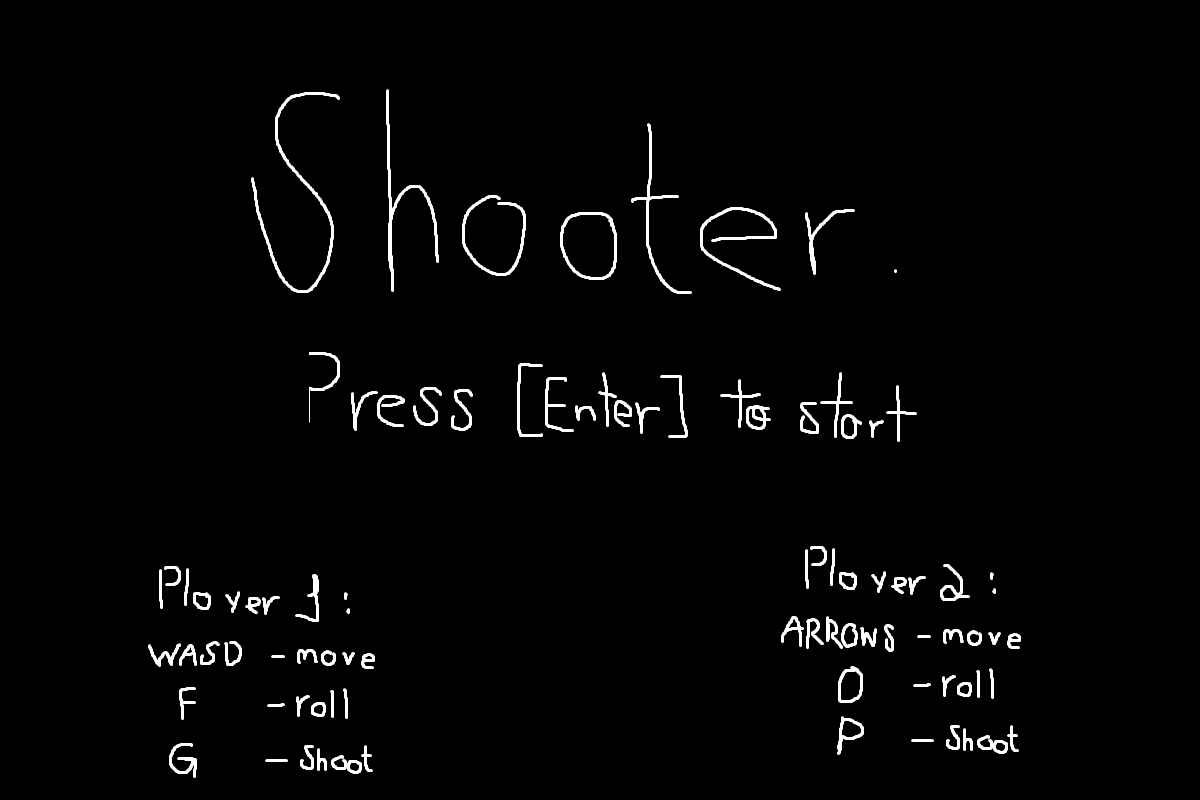 Shooter.
Press [Enter] to start
Player 1:
WASD - move
F - roll
G - Shoot
Player 2:
ARROWS - move
O - roll
P - Shoot